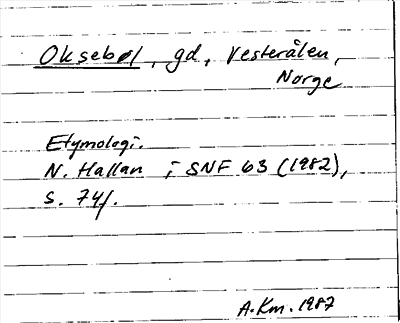 Oksebøl, gd, Vesterålen,
Norge
Etymologi.
N. Hallan i SNF 63 (1982),
s. 74f.
A.Km. 1987